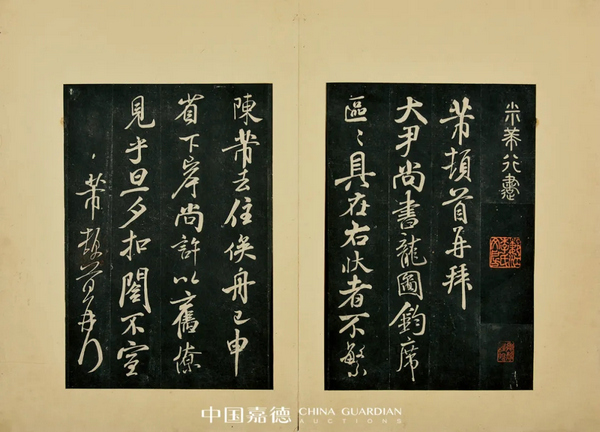 米芾行書
芾頓首再拜
大尹尚書龍圖鈞席
區〻具在右狀者不繁
陳芾去住俟舟已申
省下岸尚許以舊僚
見乎旦夕扣閤不宣
〻芾頓首再拜
中国嘉德 CHINA GUARDIAN
AUCTIONS